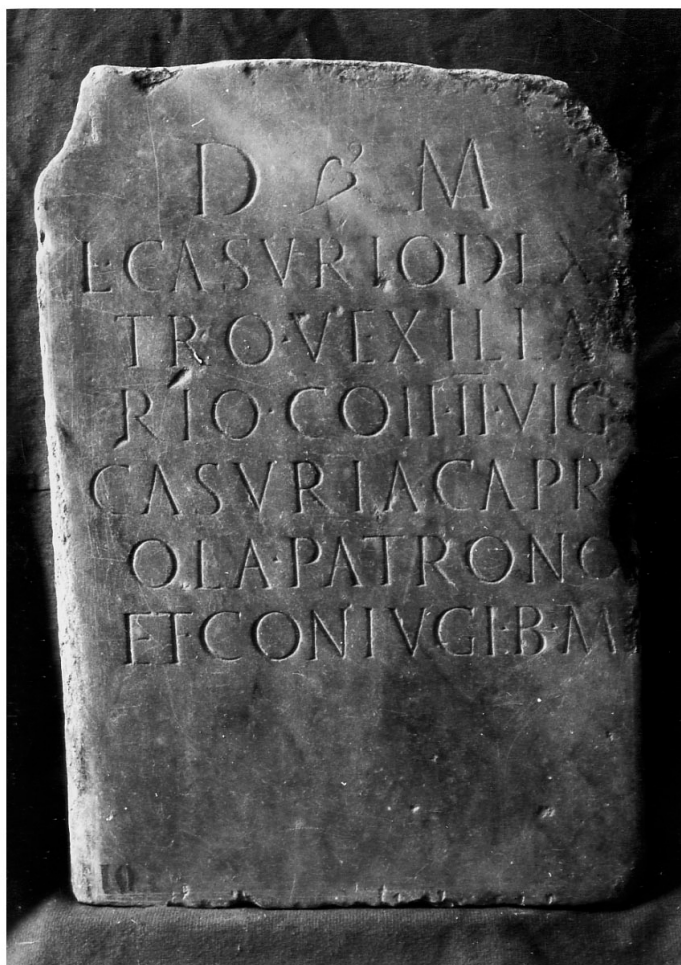 D M
L·CASVRIO DEX
TRO·VEXILLA
RIO·COH·II·VIG
CASVRIA·CAPRI
OLA·PATRONO
ET·CONIVGI·B·M·
10